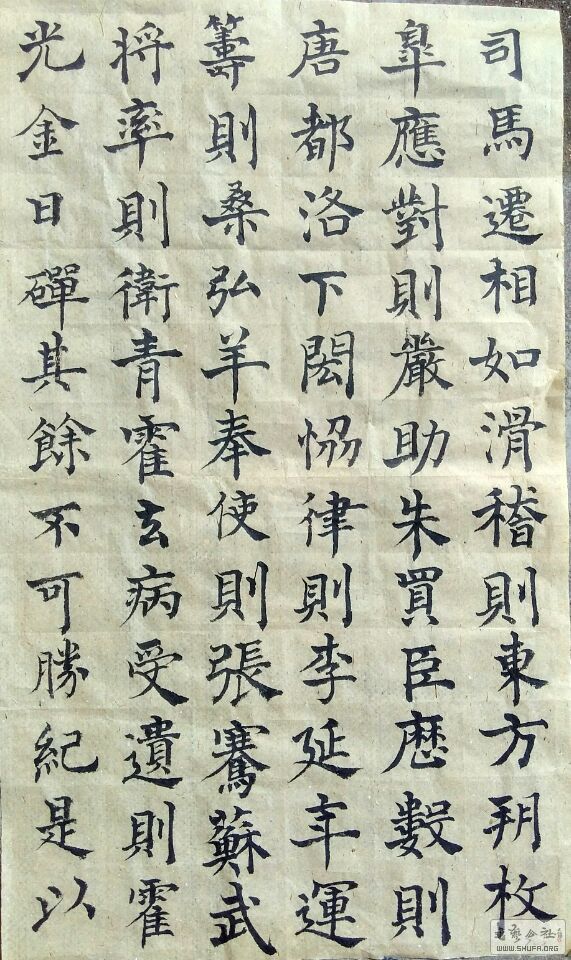 司馬遷相如滑稽則東方朔枚
皐應對則嚴助朱買臣歷數則
唐都洛下閎恊律則李延年運
籌則桑弘羊奉使則張騫蘇武
将率則衛青霍去病受遺則霍
光金日磾其餘不可勝紀是以
WWW.SHUFA.ORG